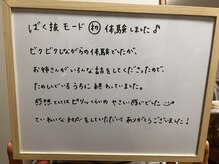 ばく抜モード㊙体験しました♪
ビクビクしながらの体験でしたが、
お姉さんがいろんな話をしてくださったので、
たのしんでいるうちに終わっていました。
感想としてはピリッくらいのやさしい感じでした
ていねいな対応していただいてありがとうございました!